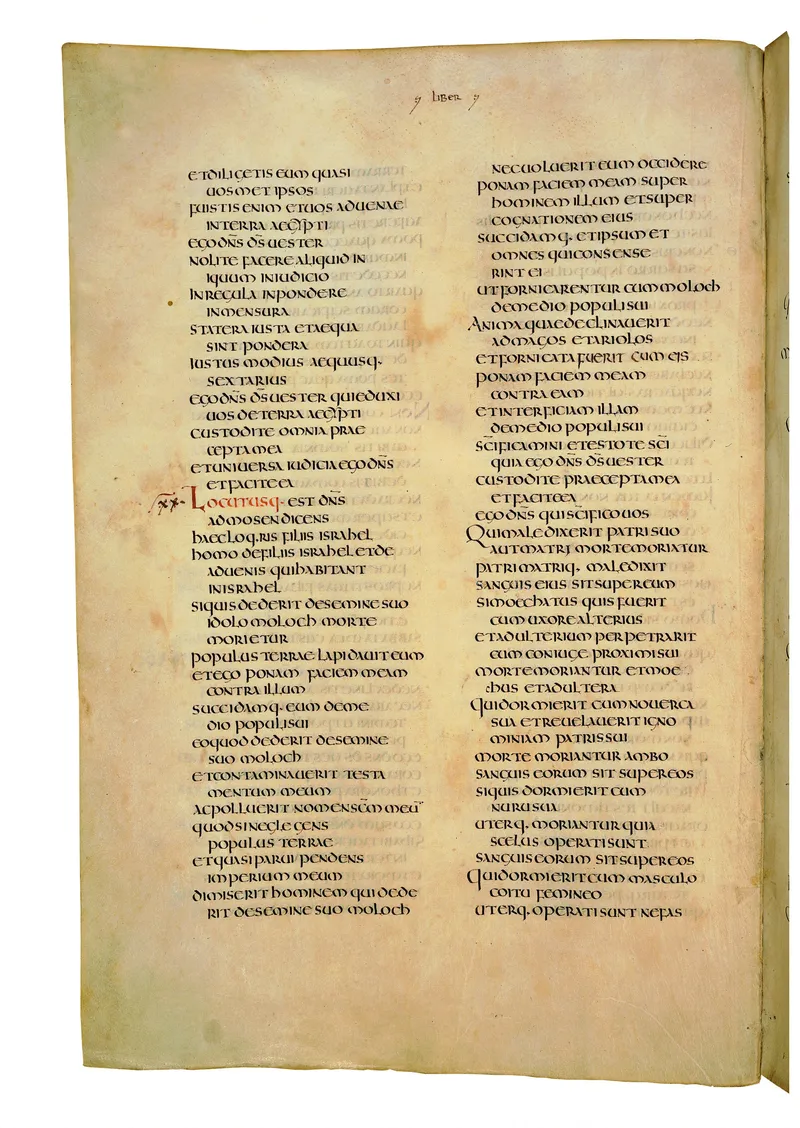 LIBER
ETDILIGETIS EUM QUASI
UOSMET IPSOS
FUISTIS ENIM ETUOS ADUENAE
INTERRA AEGYPTI
EGO DN̄S D̄S UESTER
NOLITE FACERE ALIQUID IN
IQUUM INIUDICIO
INREGULA INPONDERE
INMENSURA
STATERA IUSTA ETAEQUA
SINT PONDERA
IUSTUS MODIUS AEQUUSQ·
SEXTARIUS
EGO DN̄S D̄S UESTER QUIEDUXI
UOS DETERRA AEGYPTI
CUSTODITE OMNIA PRAE
CEPTA MEA
ETUNIUERSA IUDICIA EGO DN̄S
ETFACITE EA
XX LOCUTUSQ· EST DN̄S
ADMOSEN DICENS
HAEC LOQ·RIS FILIIS ISRAHEL
HOMO DEFILIIS ISRAHEL ETDE
ADUENIS QUIHABITANT
INISRAHEL
SIQUIS DEDERIT DESEMINE SUO
IDOLO MOLOCH MORTE
MORIETUR
POPULUS TERRAE LAPIDAUIT EUM
ETEGO PONAM FACIEM MEAM
CONTRA ILLUM
SUCCIDAMQ· EUM DEME
DIO POPULISUI
EOQUOD DEDERIT DESEMINE
SUO MOLOCH
ETCONTAMINAUERIT TESTA
MENTUM MEUM
ACPOLLUERIT NOMEN SC̄M MEŪ
QUODSI NEGLEGENS
POPULUS TERRAE
ETQUASI PARUI PENDENS
IMPERIUM MEUM
DIMISERIT HOMINEM QUI DEDE
RIT DESEMINE SUO MOLOCH
NECUOLUERIT EUM OCCIDERE
PONAM FACIEM MEAM SUPER
HOMINEM ILLUM ETSUPER
COGNATIONEM EIUS
SUCCIDAMQ· ETIPSUM ET
OMNES QUICONSENSE
RINT EI
UTFORNICARENTUR CUM MOLOCH
DEMEDIO POPULISUI
ANIMA QUAEDECLINAUERIT
ADMAGOS ETARIOLOS
ETFORNICATA FUERIT CUM EIS
PONAM FACIEM MEAM
CONTRA EAM
ETINTERFICIAM ILLAM
DEMEDIO POPULISUI
SC̄IFICAMINI ETESTOTE SC̄I
QUIA EGO DN̄S D̄S UESTER
CUSTODITE PRAECEPTA MEA
ETFACITE EA
EGO DN̄S QUI SC̄IFICO UOS
QUIMALEDIXERIT PATRI SUO
AUTMATRI MORTE MORIATUR
PATRI MATRIQ· MALEDIXIT
SANGUIS EIUS SITSUPEREUM
SIMOECHATUS QUIS FUERIT
CUM UXORE ALTERIUS
ETADULTERIUM PERPETRARIT
CUM CONIUGE PROXIMISUI
MORTE MORIANTUR ETMOE
CHUS ETADULTERA
QUIDORMIERIT CUM NOUERCA
SUA ETREUELAUERIT IGNO
MINIAM PATRIS SUI
MORTE MORIANTUR AMBO
SANGUIS EORUM SIT SUPEREOS
SIQUIS DORMIERIT CUM
NURU SUA
UTERQ· MORIANTUR QUIA
SCELUS OPERATI SUNT
SANGUIS EORUM SITSUPEREOS
QUIDORMIERIT CUM MASCULO
COITU FEMINEO
UTERQ· OPERATI SUNT NEFAS